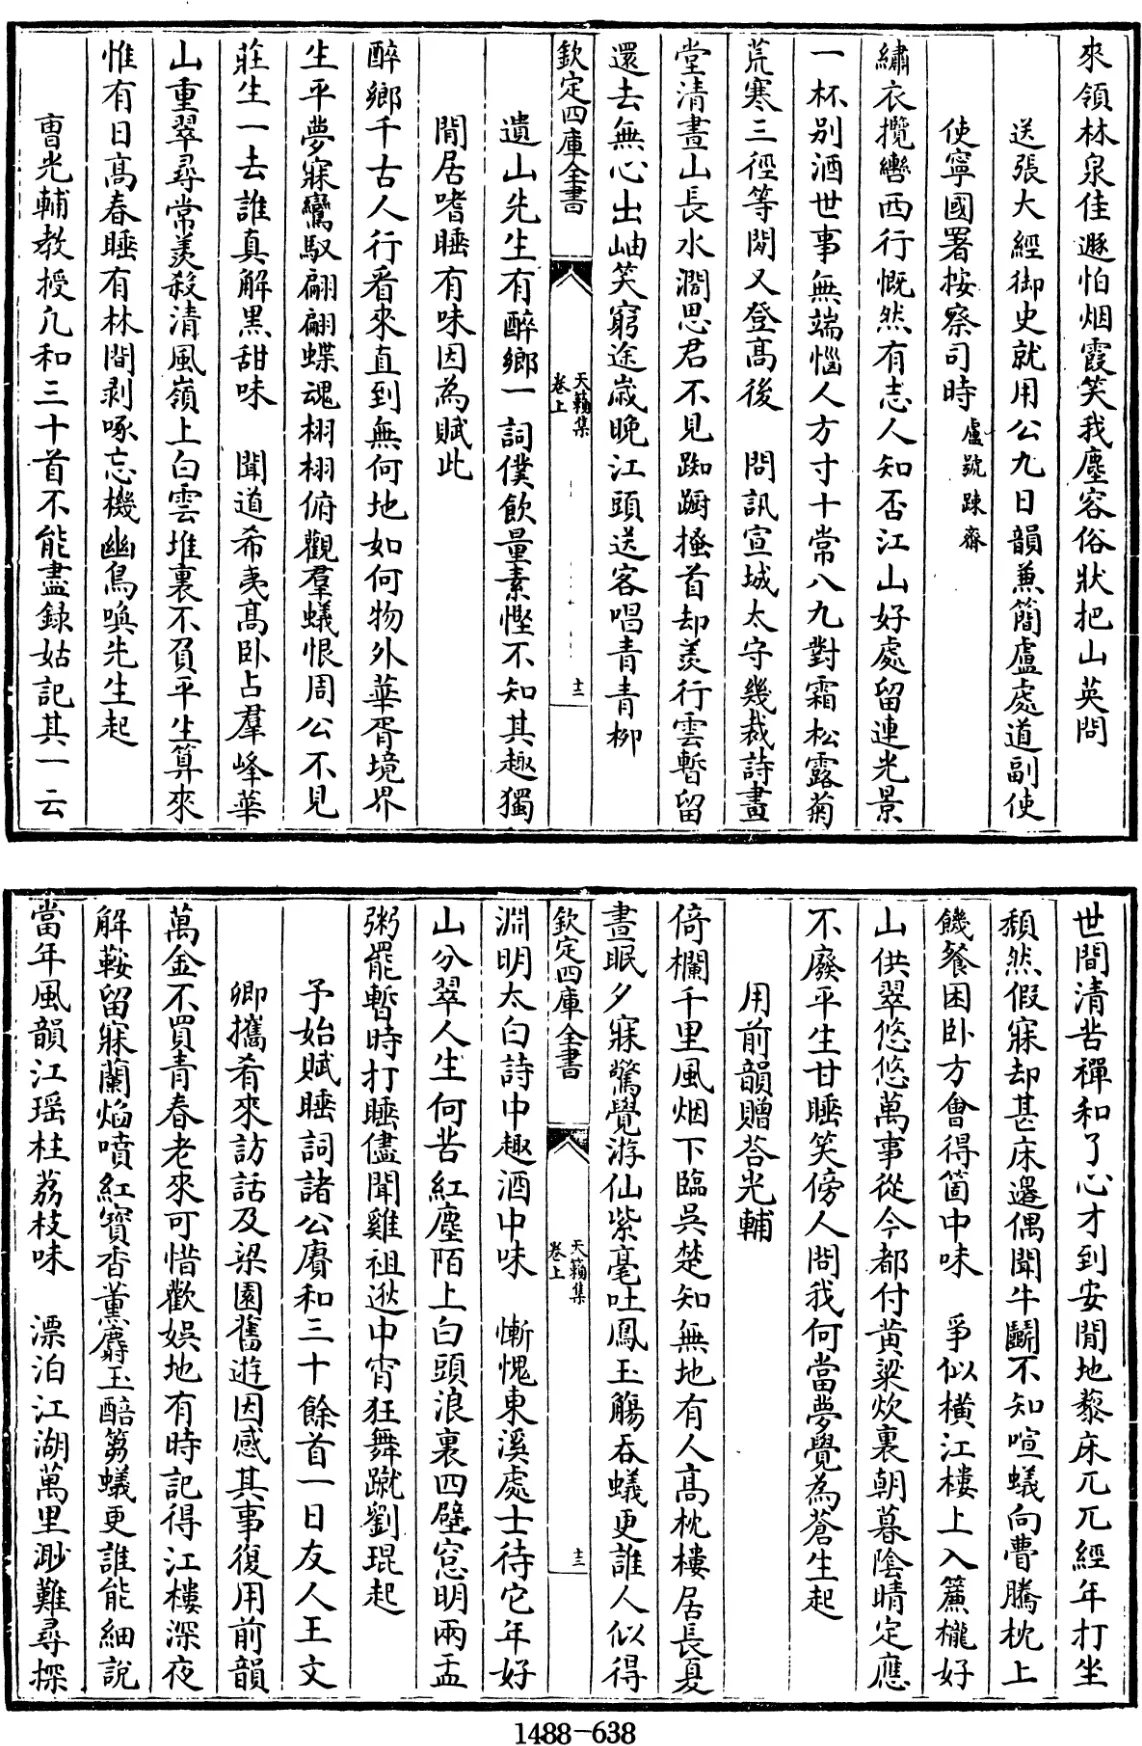 來領林泉佳遯怕烟霞笑我塵容俗狀把山英問
送張大經御史就用公九日韻兼簡盧處道副使
使寧國署按察司時盧號踈齋
繡衣攬轡西行慨然有志人知否江山好處留連光景
一杯别酒世事無端惱人方寸十常八九對霜松露菊
荒寒三徑等閒又登髙後　問訊宣城太守幾裁詩畫
堂清晝山長水濶思君不見踟蹰搔首却羨行雲暫留
還去無心出岫笑窮途歳晚江頭送客唱青青柳
欽定四庫全書　天籟集卷上　十二
遺山先生有醉鄉一詞僕飲量素慳不知其趣獨
閒居嗜睡有味因為賦此
醉鄉千古人行看來直到無何地如何物外華胥境界
生平夢寐鸞馭翩翩蝶魂栩栩俯觀羣蟻恨周公不見
莊生一去誰真解黒甜味　聞道希夷髙卧占羣峰華
山重翠尋常羨殺清風嶺上白雲堆裏不負平生算來
惟有日髙春睡有林間剥啄忘機幽鳥喚先生起
曺光輔教授凢和三十首不能盡録姑記其一云
世間清苦禪和了心才到安閒地藜床兀兀經年打坐
頽然假寐却甚床邉偶聞牛鬭不知喧蟻向瞢騰枕上
饑餐困卧方會得箇中味　爭似横江樓上入簾櫳好
山供翠悠悠萬事從今都付黄粱炊裏朝暮陰晴定應
不廢平生甘睡笑傍人問我何當夢覺為蒼生起
用前韻贈答光輔
倚欄千里風烟下臨吳楚知無地有人髙枕樓居長夏
晝眠夕寐驚覺游仙紫毫吐鳳玉觴吞蟻更誰人似得
欽定四庫全書　天籟集卷上　十三
淵明太白詩中趣酒中味　慚愧東溪處士待它年好
山分翠人生何苦紅塵陌上白頭浪裏四壁窓明兩盂
粥罷暫時打睡儘聞雞祖逖中宵狂舞蹴劉琨起
予始賦睡詞諸公賡和三十餘首一日友人王文
卿攜肴來訪話及梁園舊遊因感其事復用前韻
萬金不買青春老來可惜歡娱地有時記得江樓深夜
解鞍留寐蘭焰噴紅寳香薰麝玉醅篘蟻更誰能細說
當年風韻江瑶柱荔枝味　漂泊江湖萬里渺難尋採
1488-638